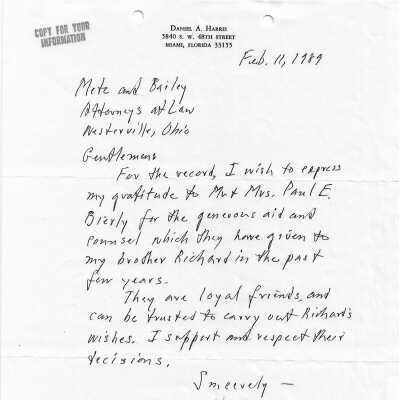 COPY FOR YOUR
INFORMATION
DANIEL A. HARRIS
3840 S. W. 48TH STREET
MIAMI, FLORIDA 33155
Feb. 11, 1989
Metz and Bailey
Attorneys at Law
Westerville, Ohio
Gentlemen:
For the record, I wish to express
my gratitude to Mr & Mrs. Paul E.
Bierly for the generous aid and
counsel which they have given to
my brother Richard in the past
few years.
They are loyal friends, and
can be trusted to carry out Richard's
wishes. I support and respect their
decisions.
Sincerely —